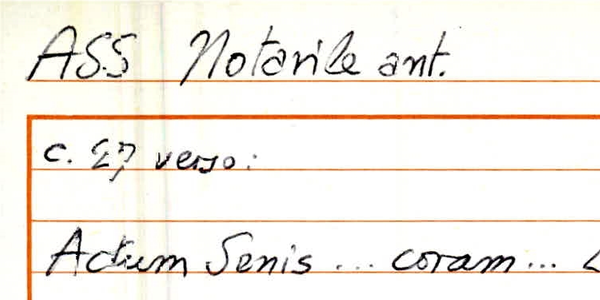 ASS Notarile ant.
c. 27 verso:
Actum Senis ... coram ...